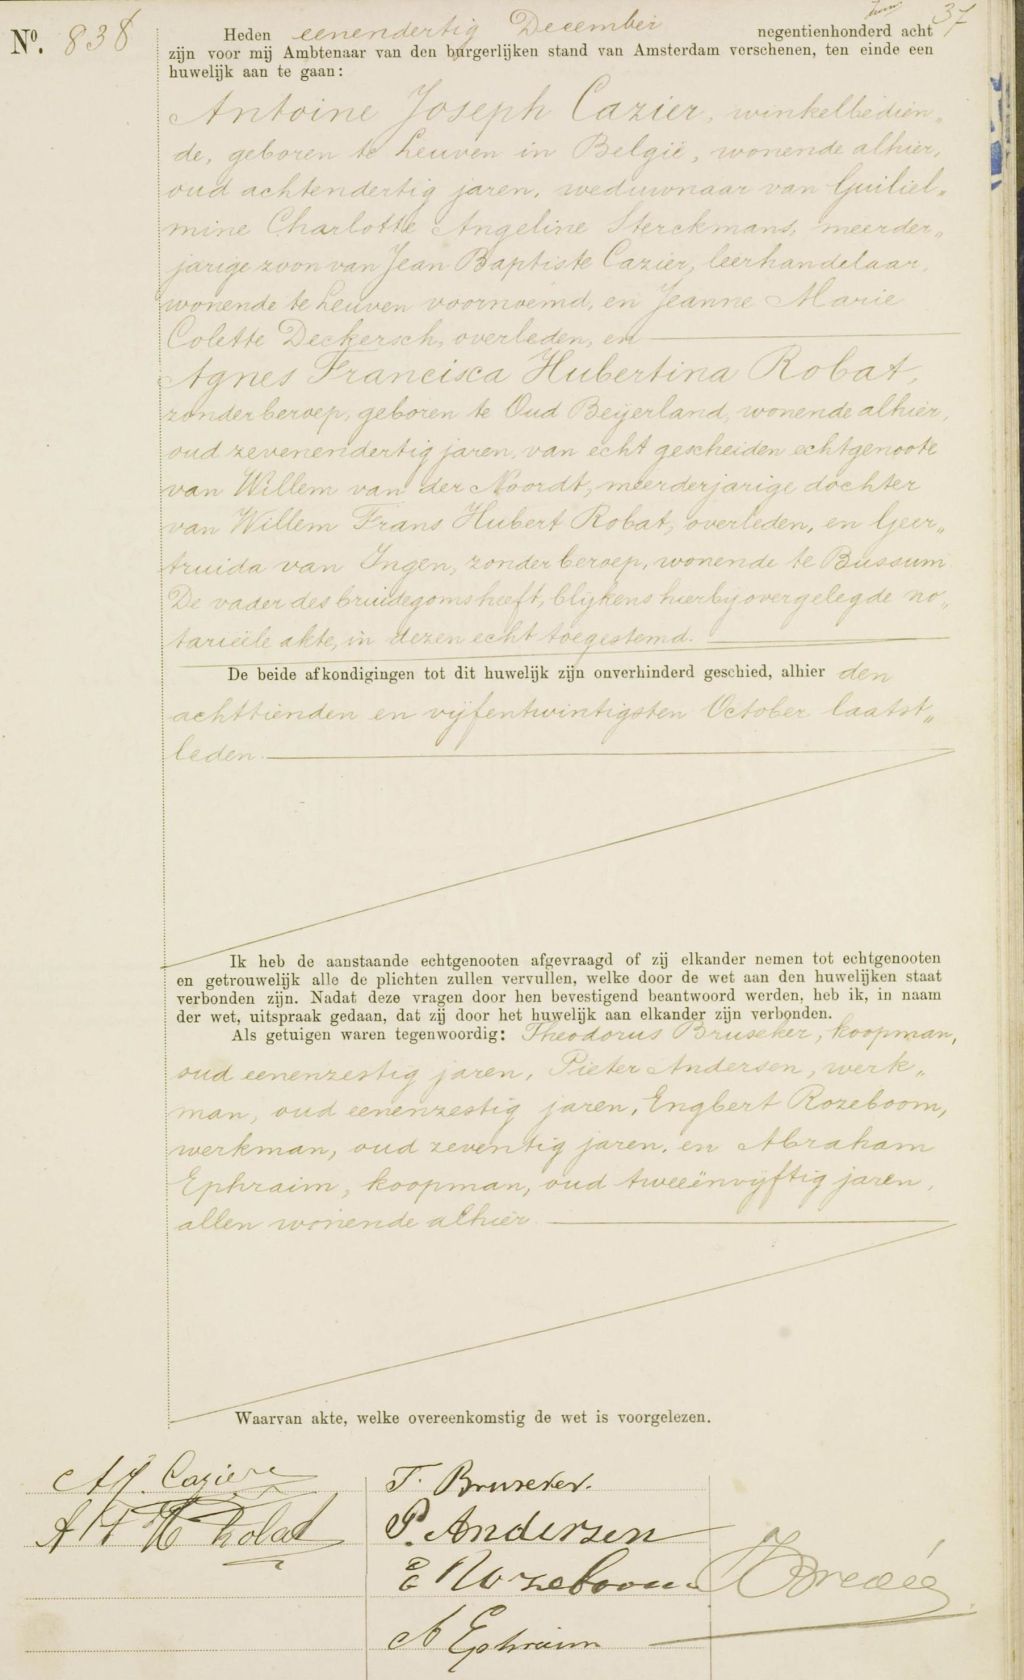 Nº. 838
37
Heden eenendertig December negentienhonderd acht
zijn voor mij Ambtenaar van den burgerlijken stand van Amsterdam verschenen, ten einde een
huwelijk aan te gaan:
Antoine Joseph Cazier, winkelbedien„
de, geboren te Leuven in België, wonende alhier,
oud achtendertig jaren, weduwnaar van Guiliel„
mine Charlotte Angeline Sterckmans, meerder„
jarige zoon van Jean Baptiste Cazier, leerhandelaar,
wonende te Leuven voornoemd, en Jeanne Marie
Colette Deckersch, overleden, en
Agnes Francisca Hubertina Robat,
zonder beroep, geboren te Oud Beijerland, wonende alhier,
oud zevenendertig jaren, van echt gescheiden echtgenoote
van Willem van der Noordt, meerderjarige dochter
van Willem Frans Hubert Robat, overleden, en Geer„
truida van Ingen, zonder beroep, wonende te Bussum.
De vader des bruidegoms heeft, blijkens hierbij overgelegde no„
tarieële akte, in dezen echt toegestemd.
De beide afkondigingen tot dit huwelijk zijn onverhinderd geschied, alhier den
achttienden en vijfentwintigsten October laatst„
leden.
Ik heb de aanstaande echtgenooten afgevraagd of zij elkander nemen tot echtgenooten
en getrouwelijk alle de plichten zullen vervullen, welke door de wet aan den huwelijken staat
verbonden zijn. Nadat deze vragen door hen bevestigend beantwoord werden, heb ik, in naam
der wet, uitspraak gedaan, dat zij door het huwelijk aan elkander zijn verbonden.
Als getuigen waren tegenwoordig: Theodorus Bruseker, koopman,
oud eenenzestig jaren, Pieter Andersen, werk„
man, oud eenenzestig jaren, Engbert Rozeboom,
werkman, oud zeventig jaren, en Abraham
Ephraim, koopman, oud tweeënvijftig jaren,
allen wonende alhier.
Waarvan akte, welke overeenkomstig de wet is voorgelezen.
A J. Cazier
T. Bruseker.
A F H Robat
P. Andersen
E Rozeboom
A Ephraim